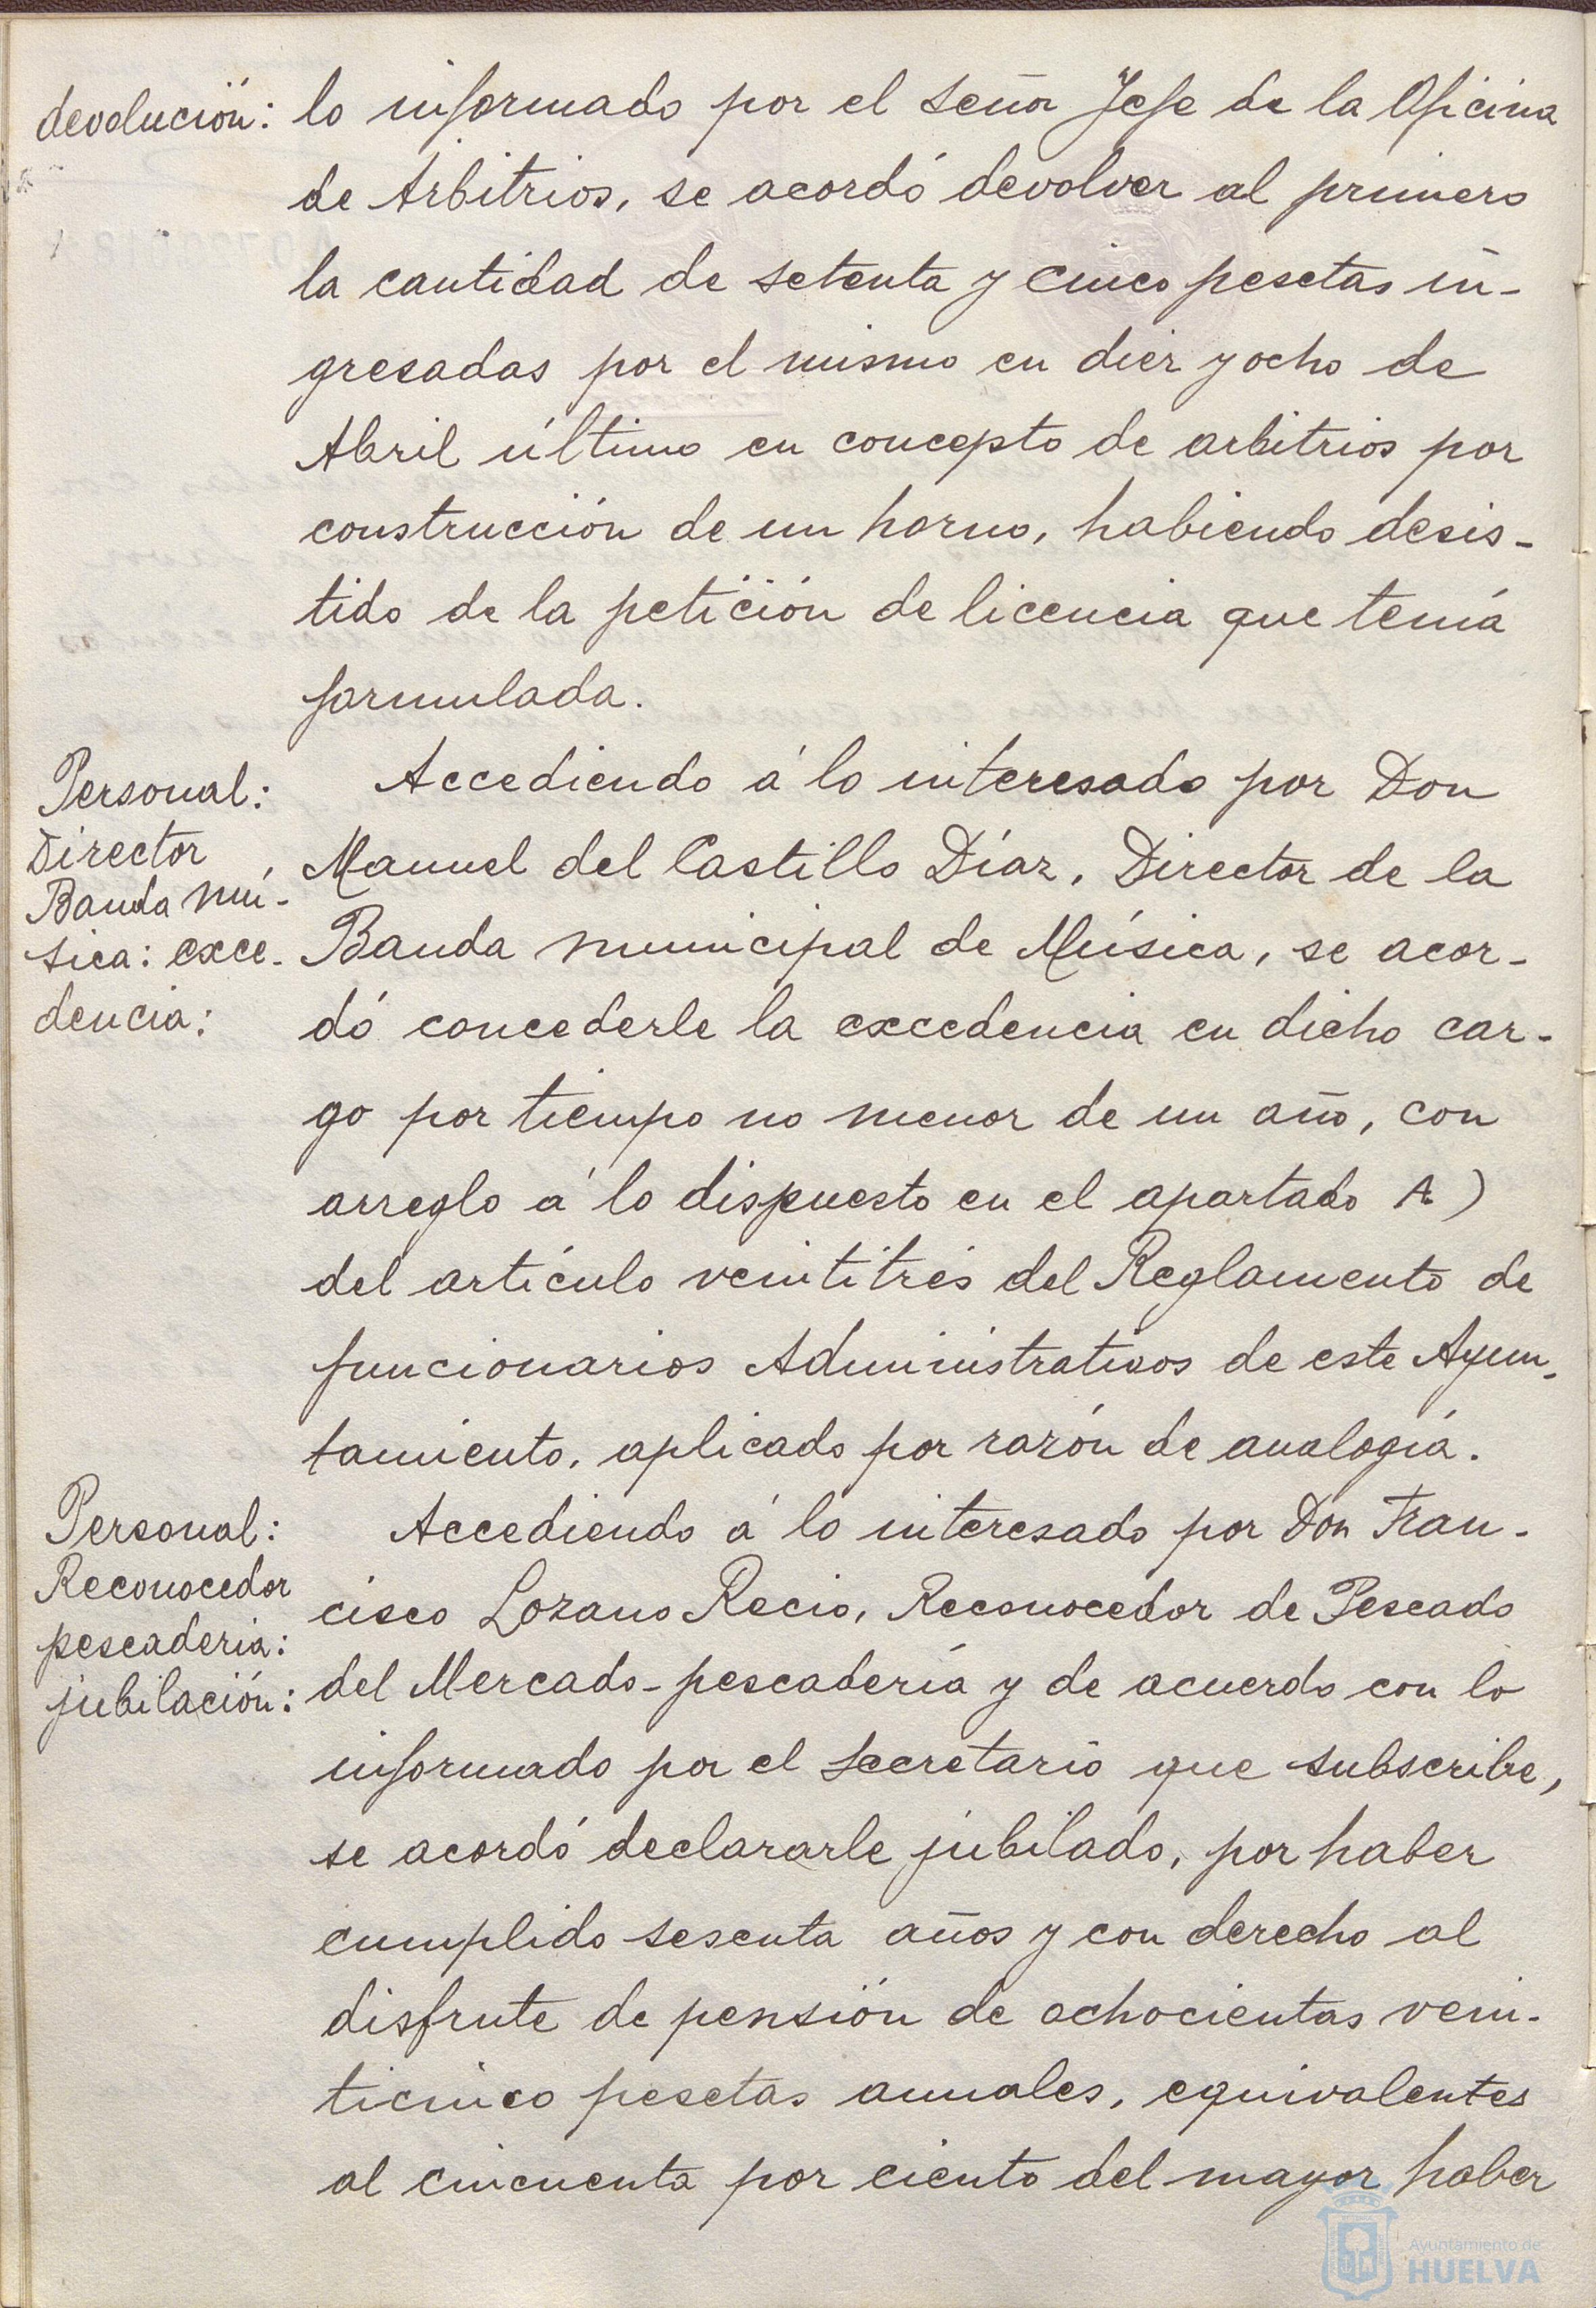 devolución:
lo informado por el Señor Jefe de la Oficina
de Arbitrios, se acordó devolver al primero
la cantidad de setenta y cinco pesetas in-
gresadas por el mismo en diez y ocho de
Abril último en concepto de arbitrios por
construcción de un horno, habiendo desis-
tido de la petición de licencia que tenía
formulada.
Personal:
Director
Banda mú-
sica: exce-
dencia:
Accediendo á lo interesado por Don
Manuel del Castillo Díaz, Director de la
Banda municipal de Música, se acor-
dó concederle la excedencia en dicho car-
go por tiempo no menor de un año, con
arreglo á lo dispuesto en el apartado A)
del artículo veintitrés del Reglamento de
funcionarios Administrativos de este Ayun-
tamiento, aplicado por razón de analogía.
Personal:
Reconocedor
pescadería:
jubilación:
Accediendo á lo interesado por Don Fran-
cisco Lozano Recio, Reconocedor de Pescado
del Mercado-pescadería y de acuerdo con lo
informado por el Secretario que subscribe,
se acordó declararle jubilado, por haber
cumplido sesenta años y con derecho al
disfrute de pensión de ochocientas vein-
ticinco pesetas anuales, equivalentes
al cincuenta por ciento del mayor haber
Ayuntamiento de
HUELVA